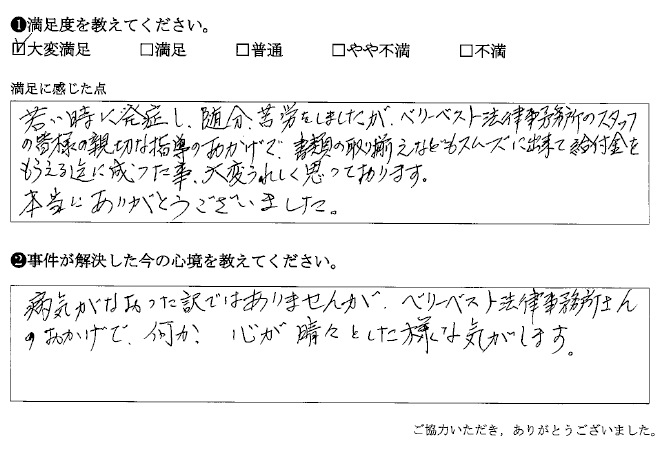 ❶満足度を教えてください。
☑大変満足 □満足 □普通 □やや不満 □不満
満足に感じた点
若い時に発症し、随分、苦労をしましたが、ベリーベスト法律事務所のスタッフ
の皆様の親切な指導のおかげで、書類の取り揃えなどもスムーズに出来て給付金を
もらえる迄に成った事、大変うれしく思っております。
本当にありがとうございました。
❷事件が解決した今の心境を教えてください。
病気がなおった訳ではありませんが、ベリーベスト法律事務所さん
のおかげで、何か、心が晴々とした様な気がします。
ご協力いただき，ありがとうございました。